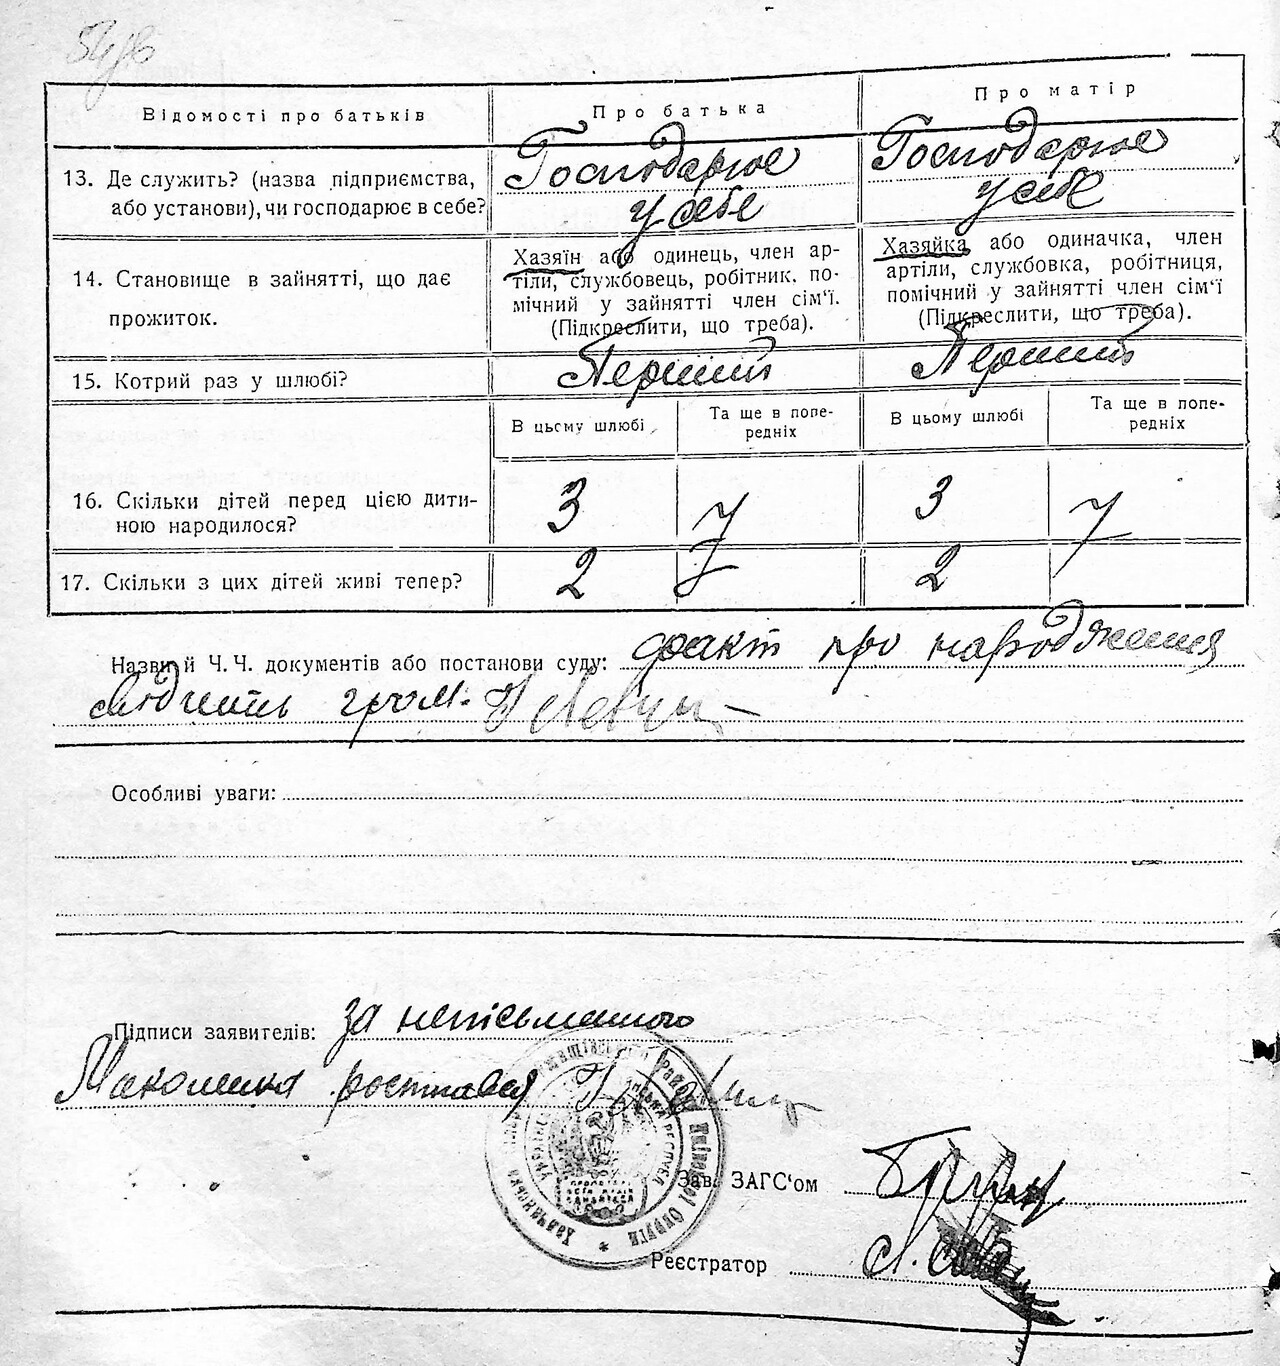 Відомості про батьків
Про батька
Про матір
13. Де служить? (назва підприємства, або установи), чи господарює в себе?
Господарює
у себе
Господарює
у себе
14. Становище в зайнятті, що дає прожиток.
Хазяїн або одинець, член ар-
тіли, службовець, робітник. по-
мічний у зайнятті член сім'ї.
(Підкреслити, що треба).
Хазяйка або одиначка, член
артіли, службовка, робітниця,
помічний у зайнятті член сім'ї
(Підкреслити, що треба).
15. Котрий раз у шлюбі?
Перший
Перший
В цьому шлюбі
Та ще в попе-
редніх
В цьому шлюбі
Та ще в попе-
редніх
16. Скільки дітей перед цією дити-
ною народилося?
3
3
17. Скільки з цих дітей живі тепер?
2
2
Назви й Ч. Ч. документів або постанови суду: факт про народження
свідчить гром.
Особливі уваги:
Підписи заявителів: за неписьменного
Зав. ЗАГС'ом
Реєстратор